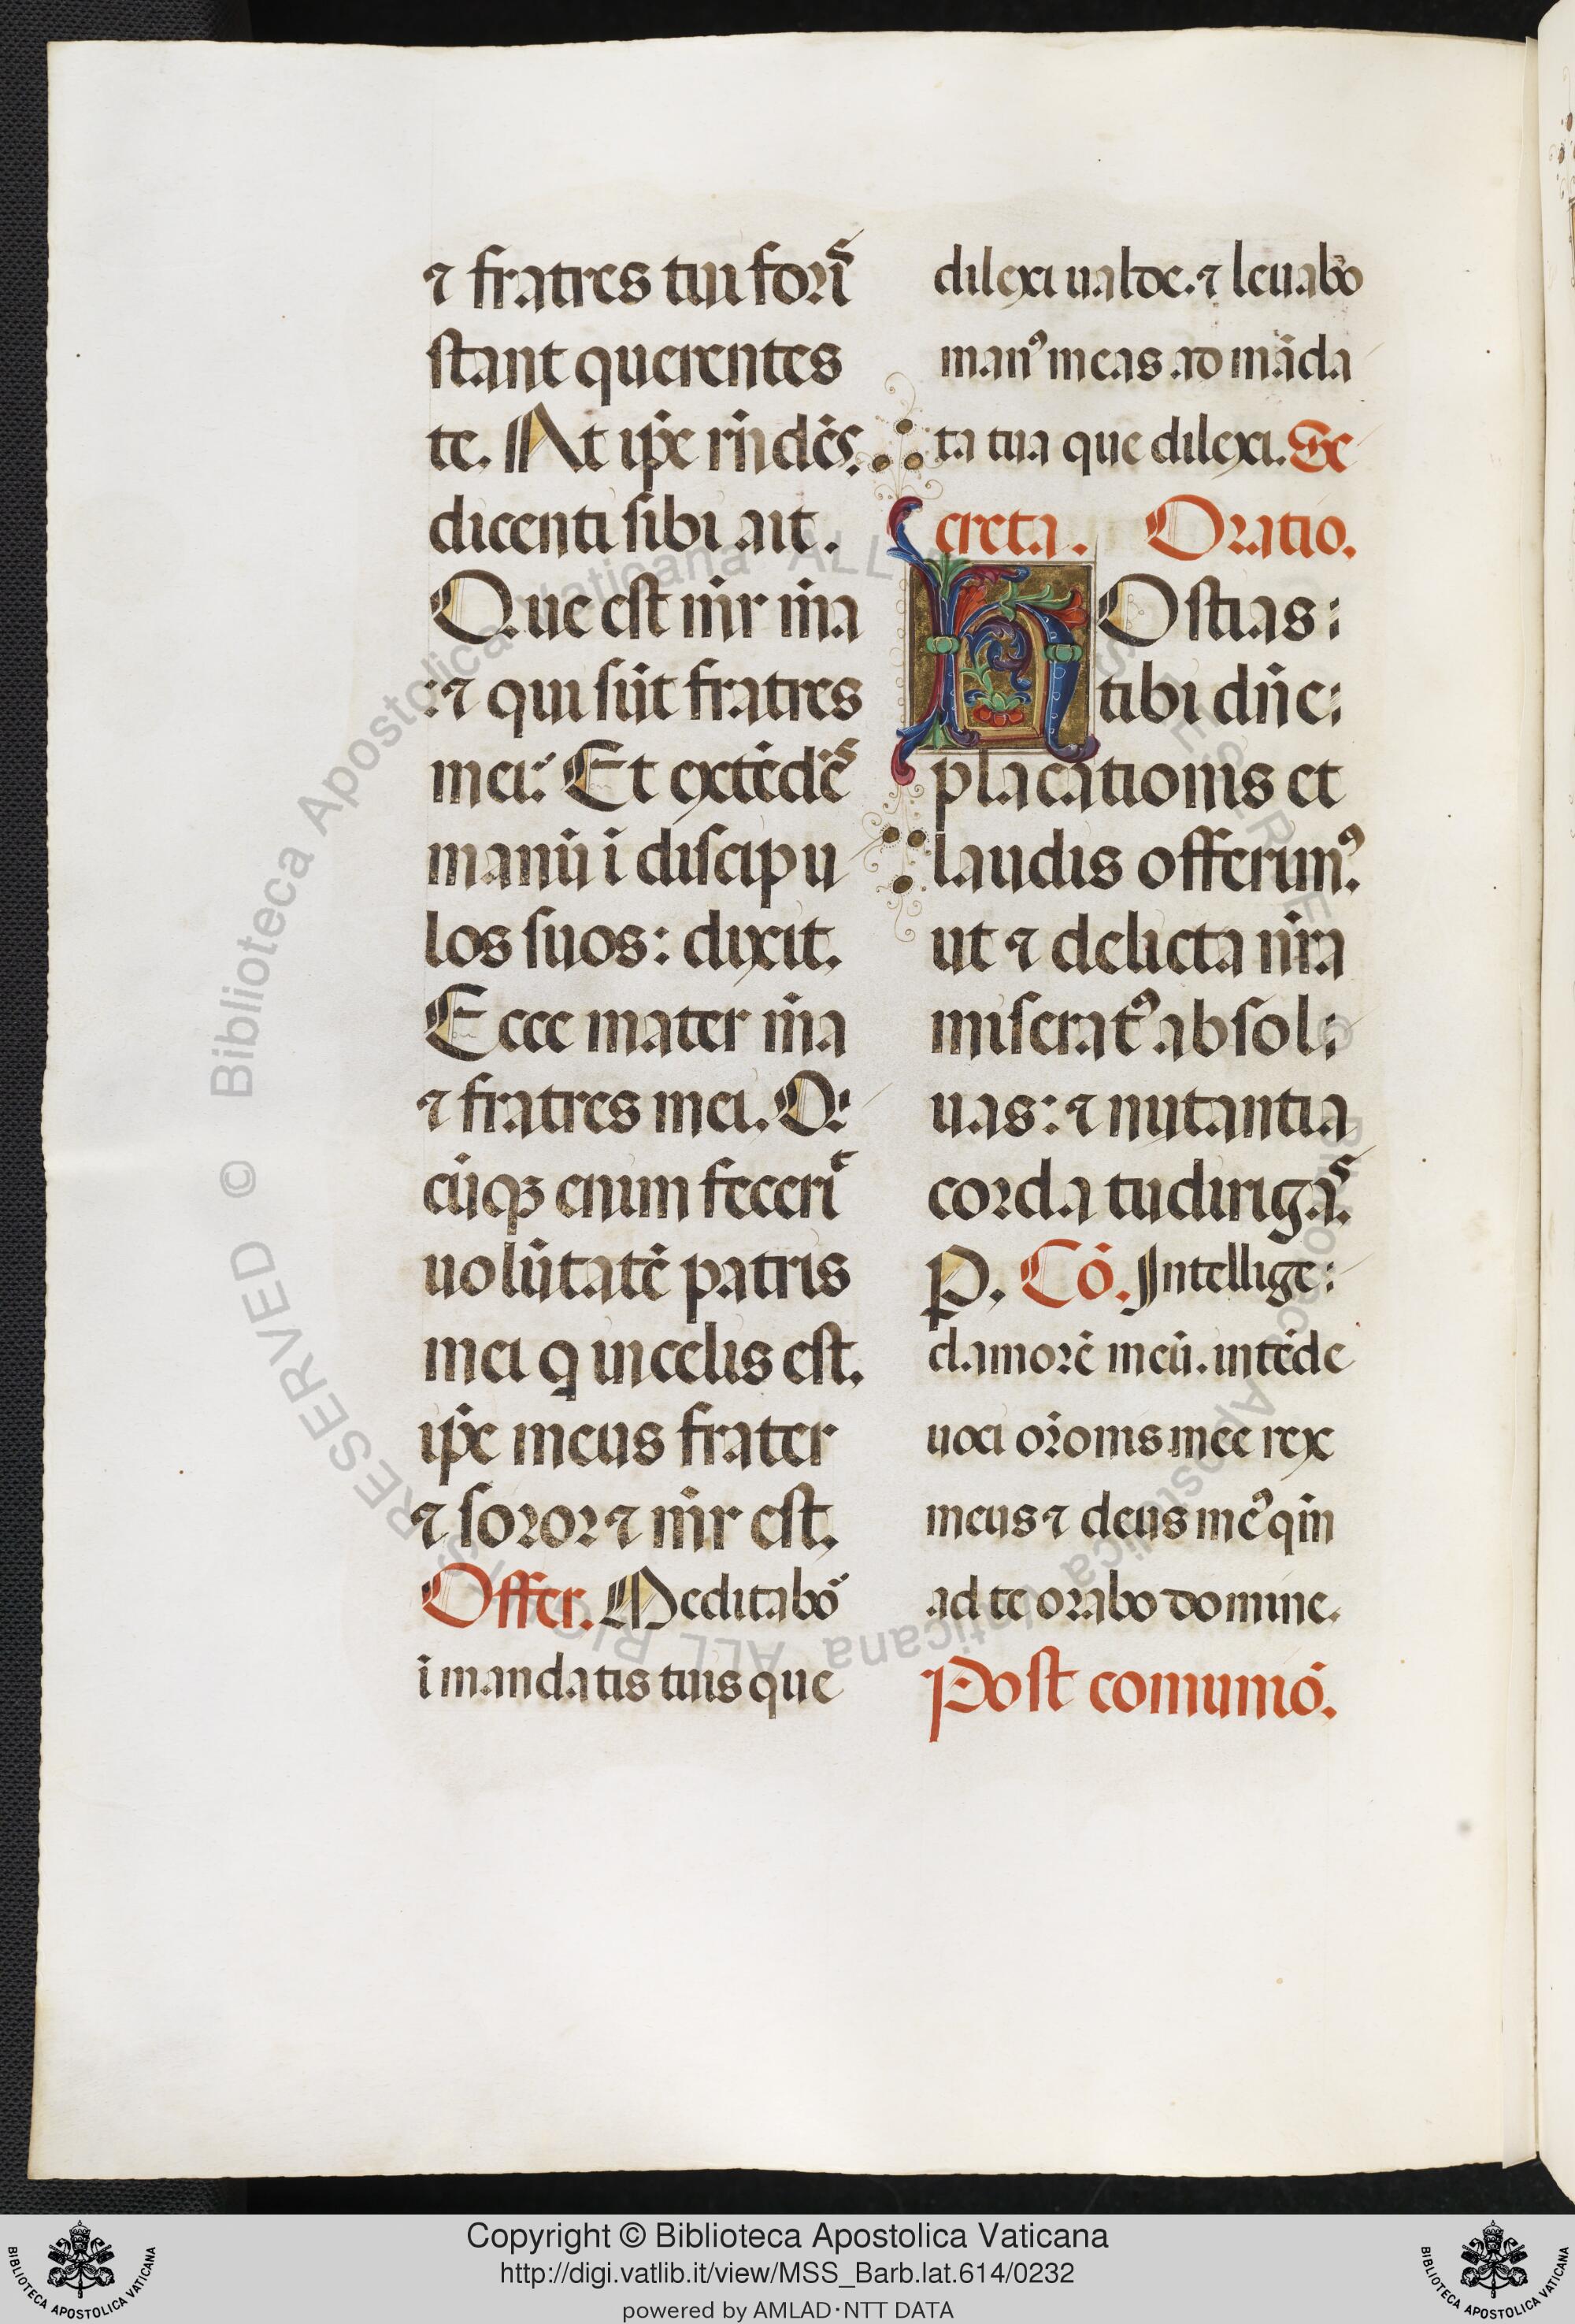 ⁊ fratres tui forĩˢ
stant querentes
te. At ip̃e rñdẽs.
dicenti sibi ait.
Que est mr̃ m̃a
:⁊ qui sũt fratres
mei: Et extẽdẽˢ
manũ ĩ discipu
los suos: dixit.
Ecce mater m̃a
⁊ fratres mei. Q:
cũqꝫ enim feceriᵗ
uolũtatẽ patris
mei q in celis est.
ip̃e meus frater
⁊ soror ⁊ mr̃ est.
Offer. Meditabõ
ĩ mandatis tuis que
dilexi ualde. ⁊ leuabo
manꝰ meas ad mãda
ta tua que dilexi. Se
creta. Oratio.
HOstias:
tibi dñe:
placationis et
laudis offerimꝰ.
ut ⁊ delicta nr̃a
miseratꝰ absol:
uas: ⁊ nutantia
corda tu dirigaˢ.
P. Cõ. Intellige:
clamorẽ meũ. intẽde
uoci orõnis mee rex
meus ⁊ deus meꝰ qm̃
ad te orabo domine.
Post comuniõ.
Copyright © Biblioteca Apostolica Vaticana
http://digi.vatlib.it/view/MSS_Barb.lat.614/0232
powered by AMLAD·NTT DATA
BIBLIOTECA APOSTOLICA VATICANA
BIBLIOTECA APOSTOLICA VATICANA
© Biblioteca Apostolica Vaticana ALL RIGHTS RESERVED